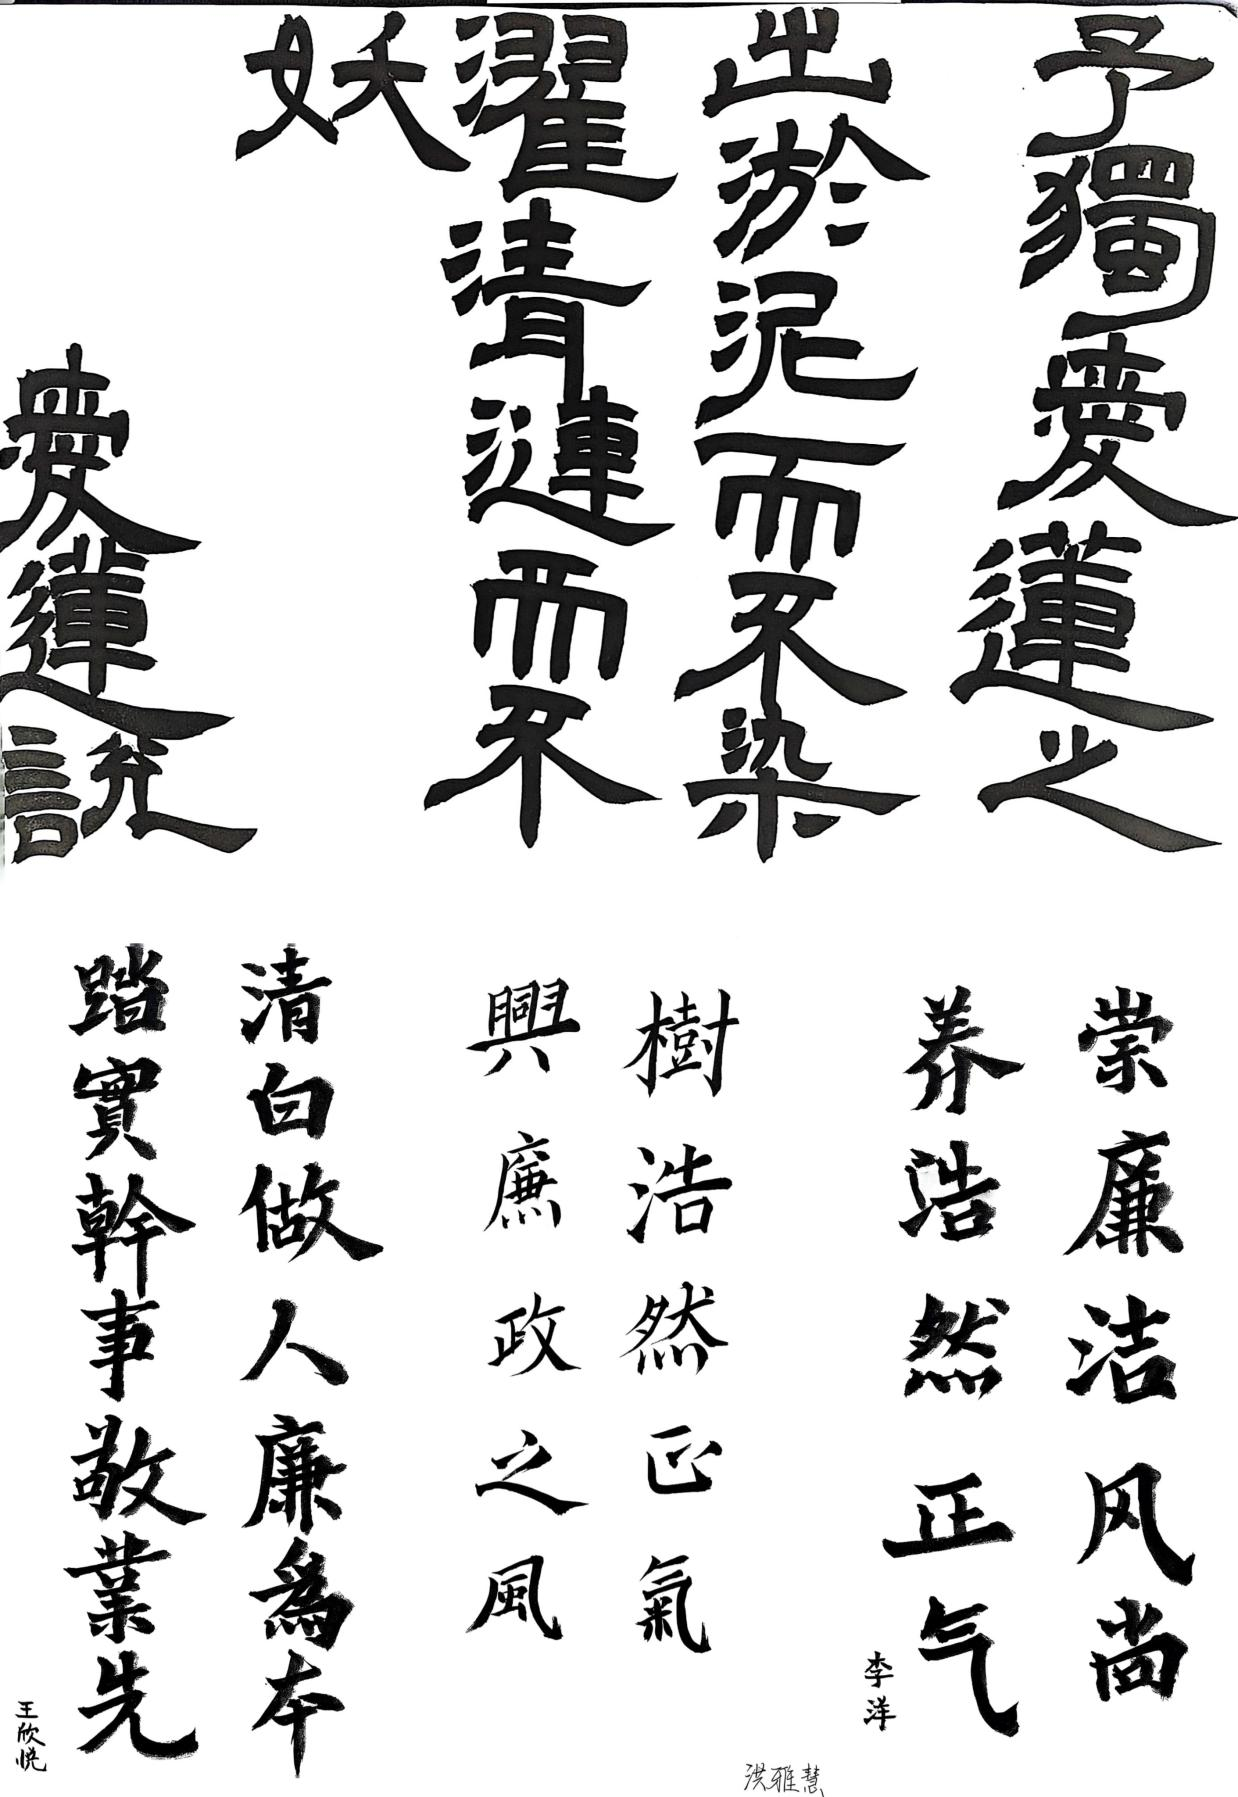 予獨愛蓮之
出淤泥而不染
濯清漣而不
妖
愛蓮說
崇廉洁风尚
养浩然正气
李洋
樹浩然正氣
興廉政之風
洪雅慧
清白做人廉為本
踏實幹事敬業先
王欣悦